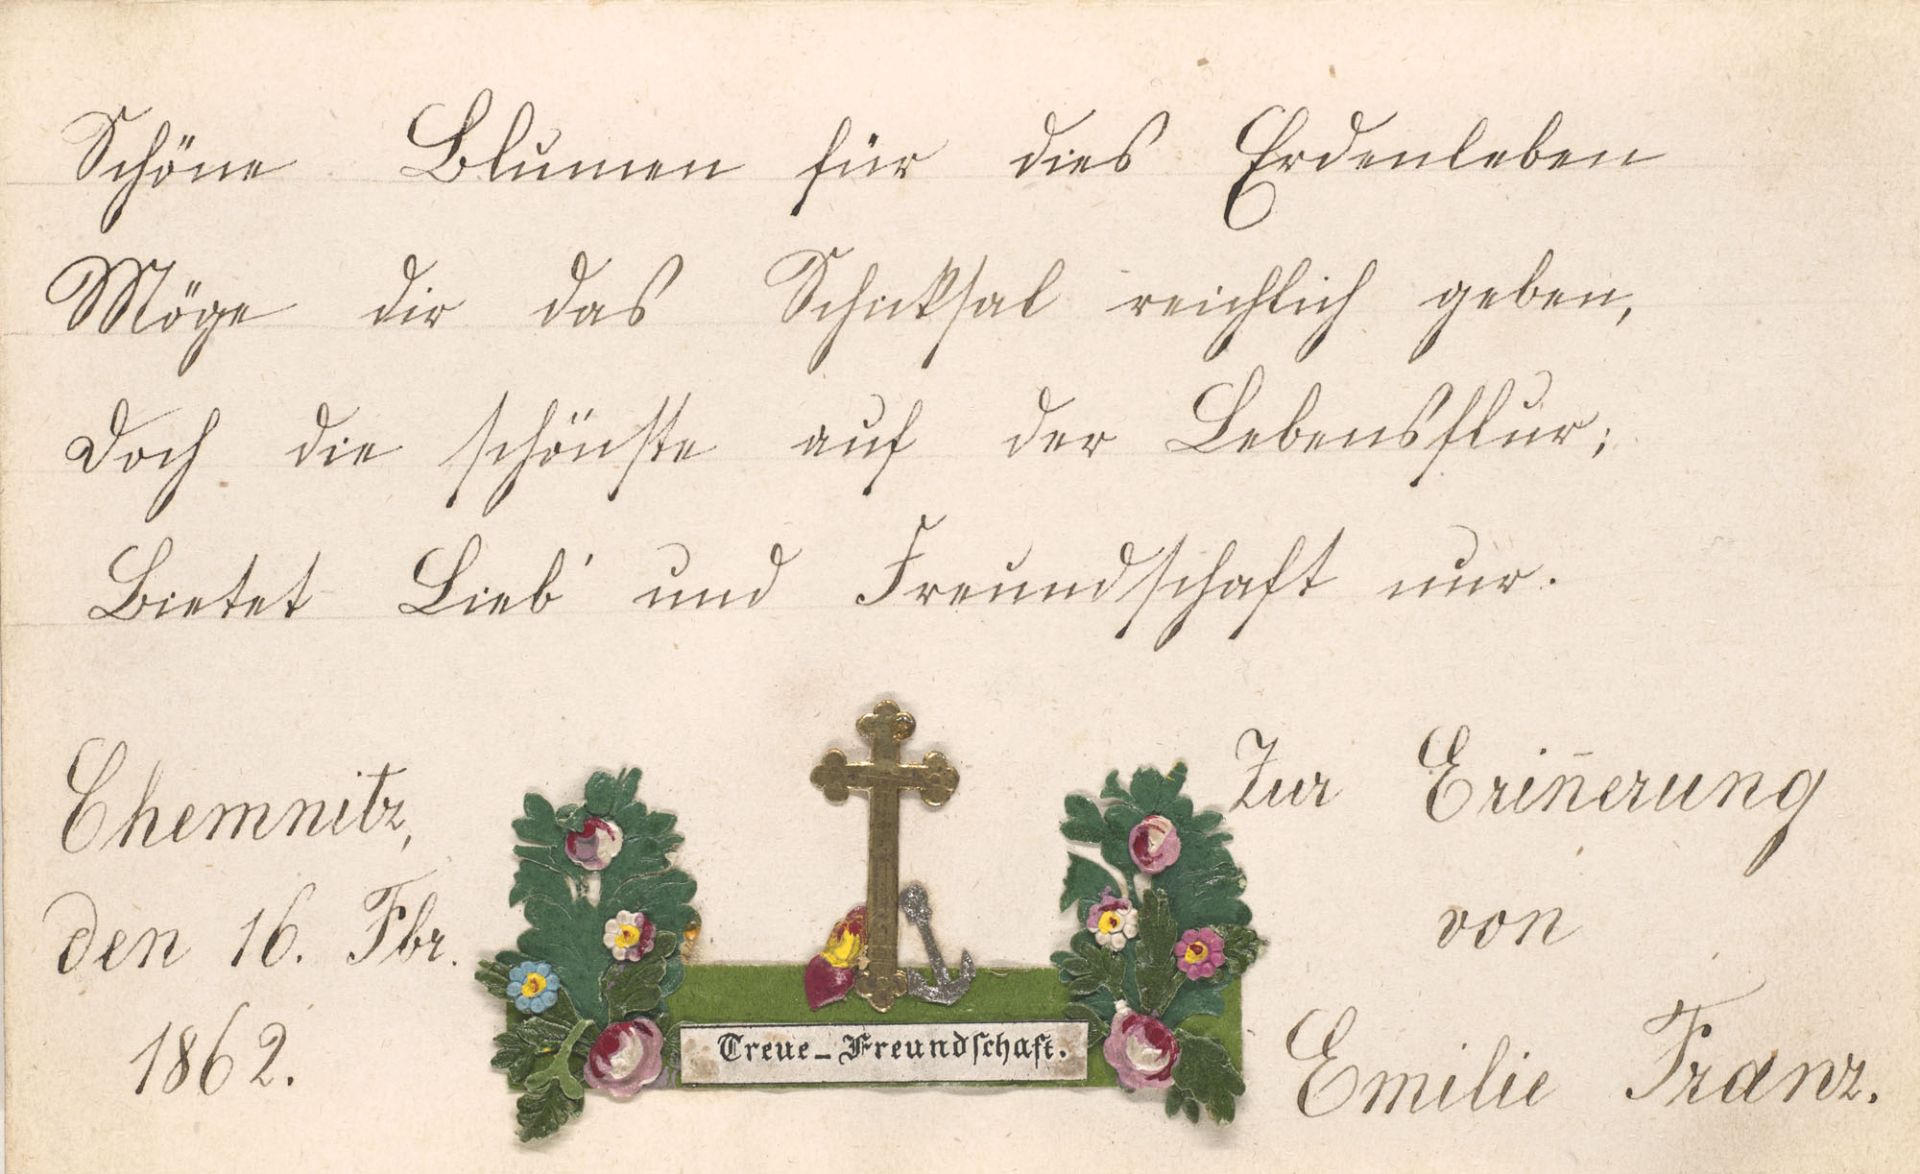 Schöne Blumen für dies Erdenleben
Möge dir das Schicksal reichlich geben,
Doch die schönste auf der Lebensflur;
Bietet Lieb' und Freundschaft nur.
Chemnitz,
den 16. Fbr.
1862.
Treue-Freundschaft.
Zur Erin̄erung
von
Emilie Franz.